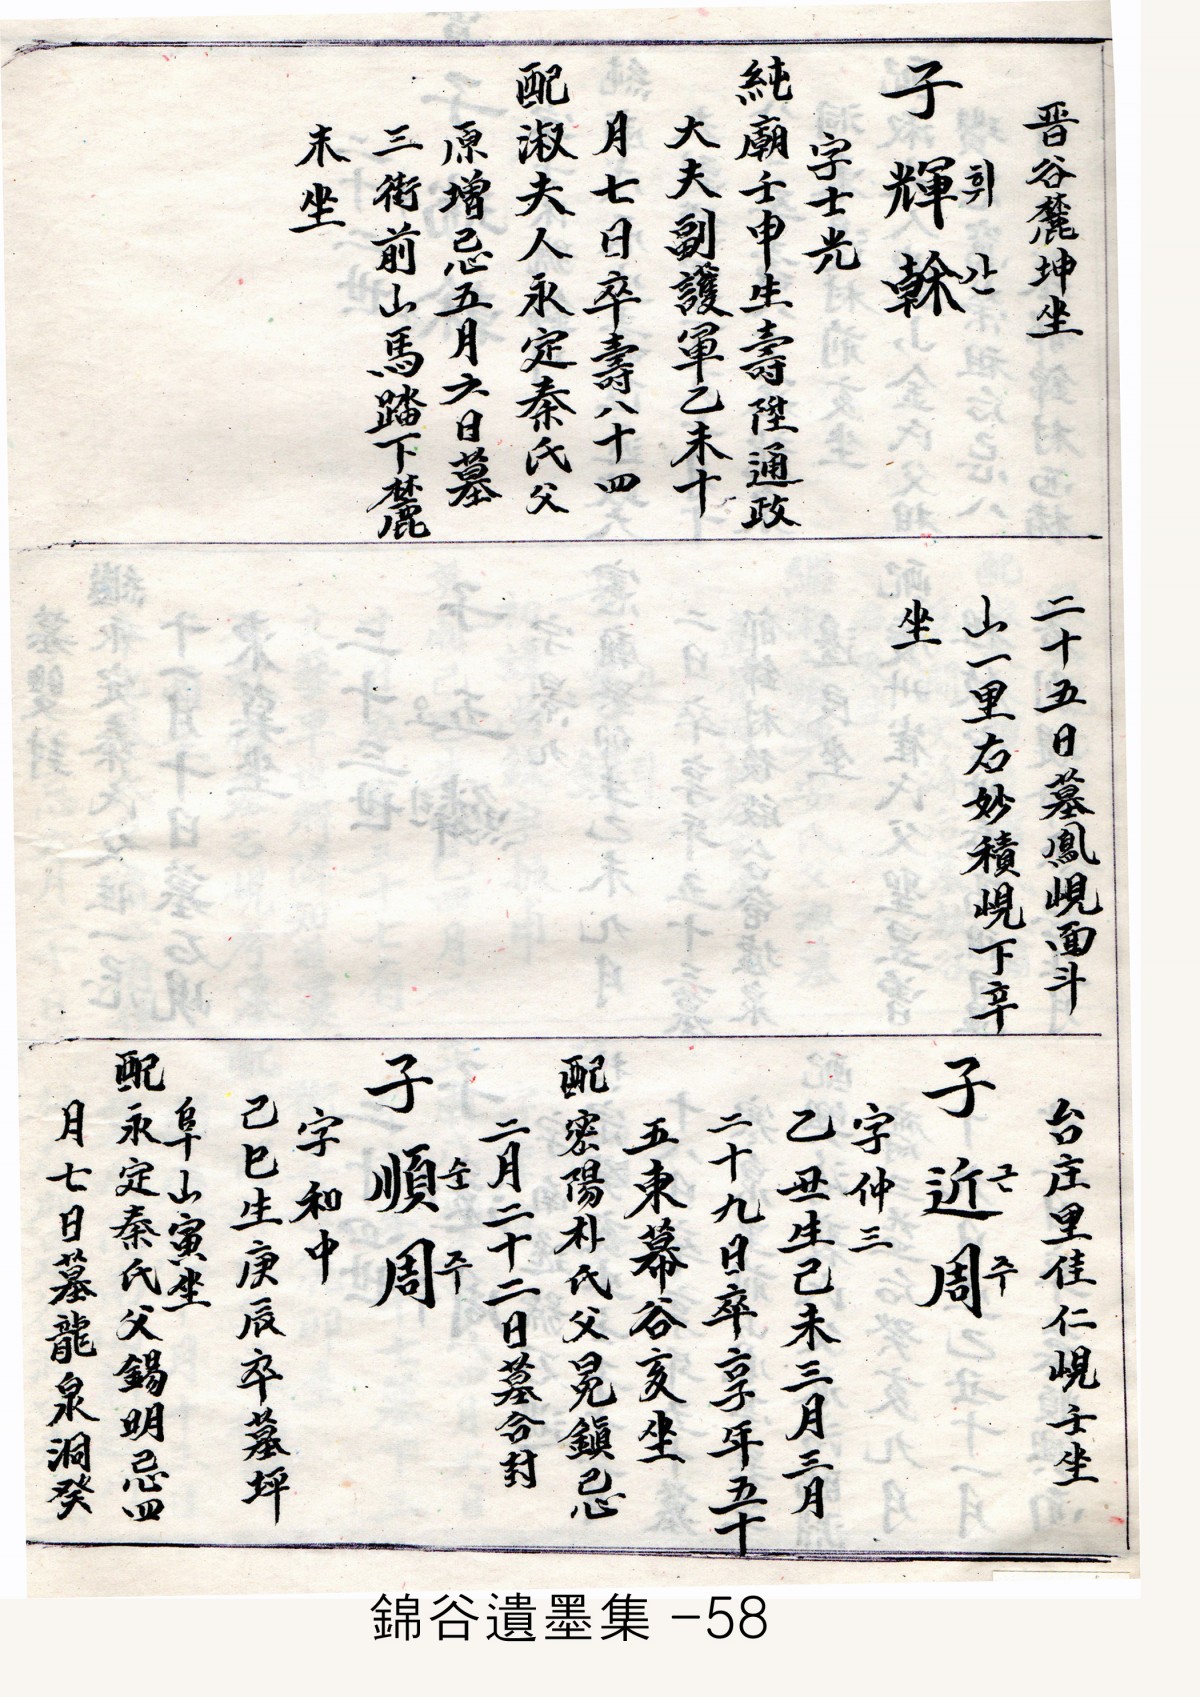 晋谷麓坤坐
子輝幹
휘간
字士光
純廟壬申生壽陞通政
大夫副護軍乙未十
月七日卒壽八十四
配淑夫人永定秦氏父
原增忌五月六日墓
三街前山馬踏下麓
未坐
二十五日墓鳳峴面斗
山一里右妙積峴下辛
坐
台庄里佳仁峴壬坐
子近周
근주
字仲三
乙丑生己未三月三月
二十九日卒享年五十
五東幕谷亥坐
配密陽朴氏父冕鎭忌
二月二十二日墓合封
子順周
순주
字和中
己巳生庚辰卒墓坪
阜山寅坐
配永定秦氏父錫明忌四
月七日墓龍泉洞癸
錦谷遺墨集 -58